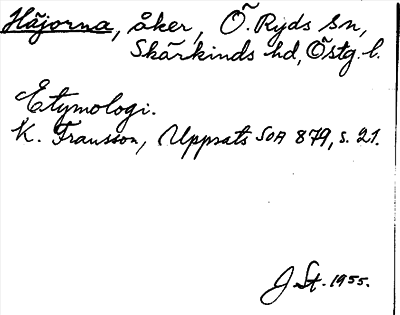 Häjorna, åker, Ö. Ryds sn,
Skärkinds hd, Östg. l.
Etymologi.
K. Fransson, Uppsats SOA 879, s. 21.
J St. 1955.